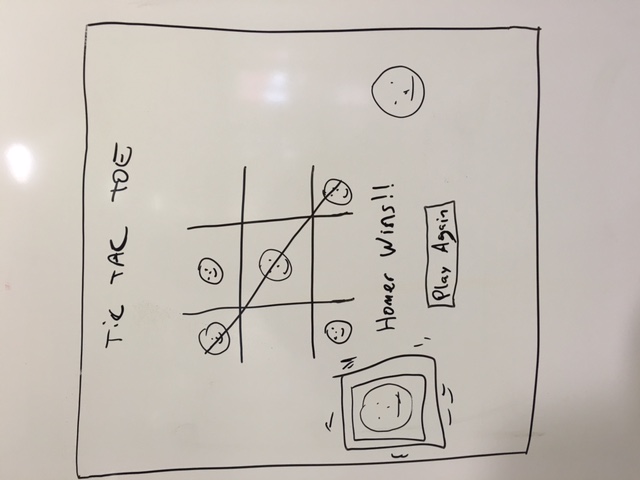 Tic TAC TOE
Homer Wins!!
Play Again